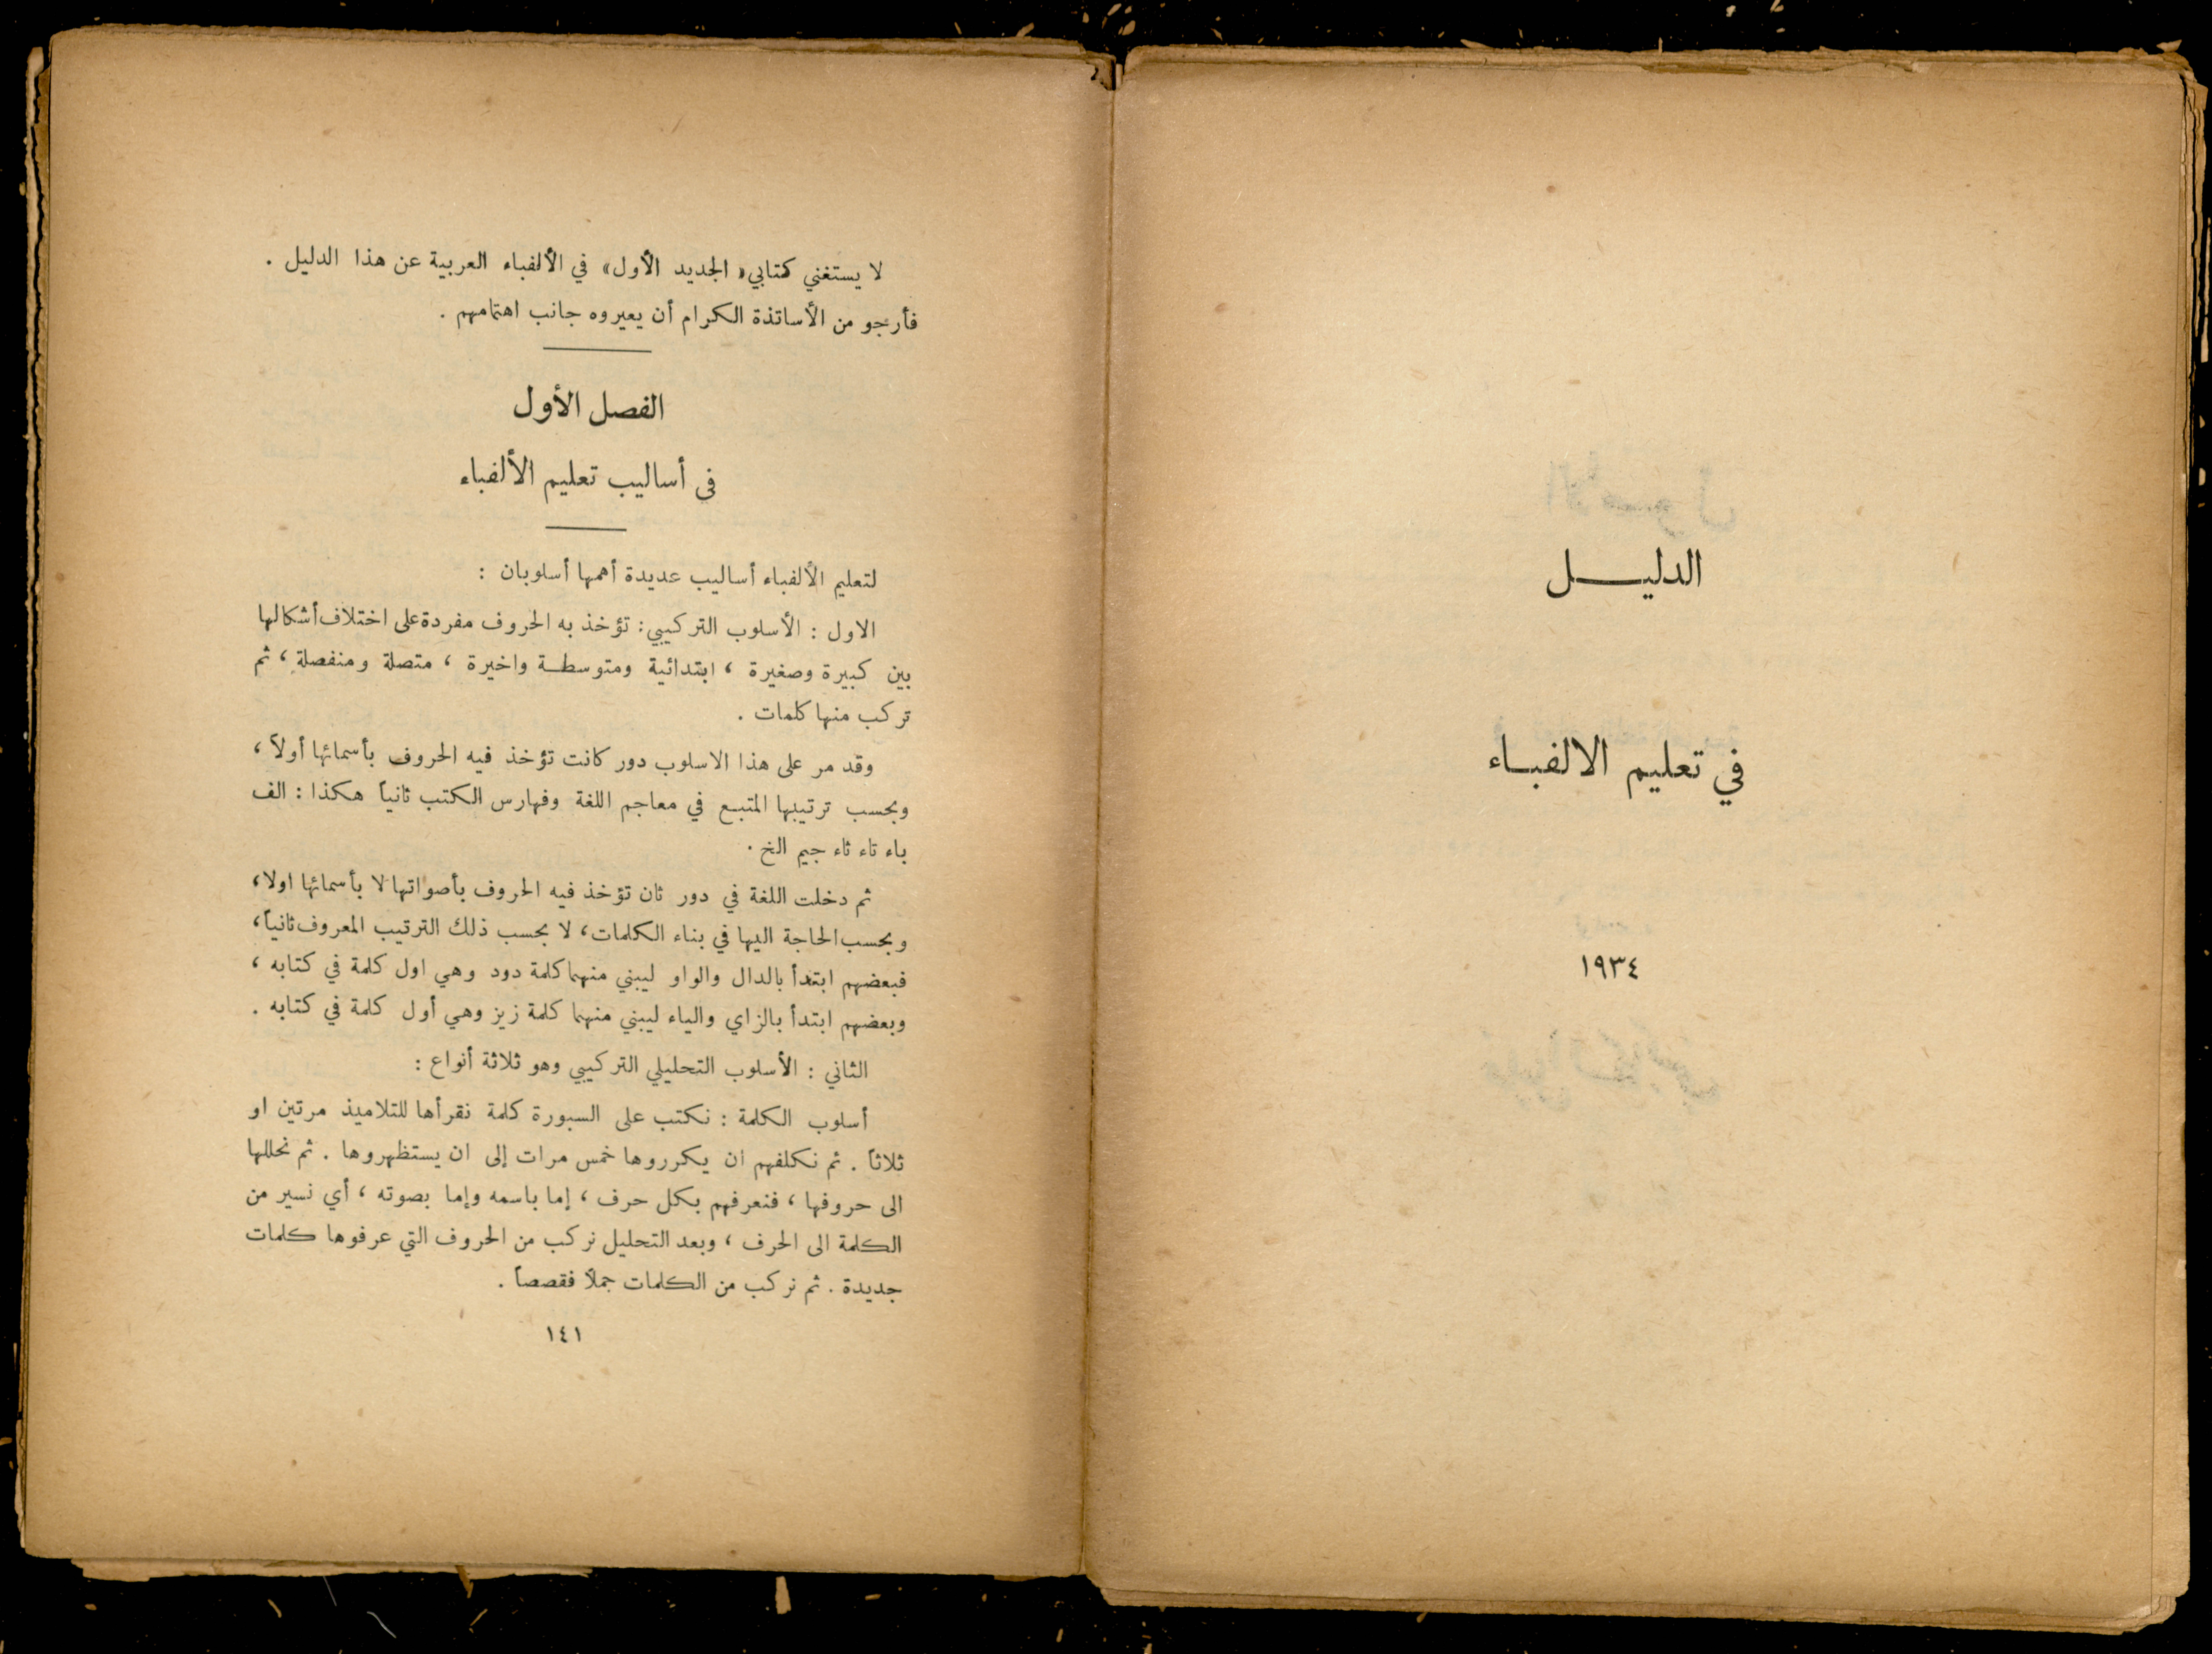 الدليــــل
في تعليم الالفبـاء
١٩٣٤
لا يستغني كتابي « الجديد الأول » في الألفباء العربية عن هذا الدليل .
فأرجو من الأساتذة الكرام أن يعيروه جانب اهتمامهم .
الفصل الأول
في أساليب تعليم الألفباء
لتعليم الألفباء أساليب عديدة أهمها أسلوبان :
الاول : الأسلوب التركيبي : تؤخذ به الحروف مفردة على اختلاف أشكالها
بين كبيرة وصغيرة ، ابتدائية ومتوسطـة واخيرة ، متصلة ومنفصلة ، ثم
تركب منها كلمات .
وقد مر على هذا الاسلوب دور كانت تؤخذ فيه الحروف بأسمائها أولاً ،
وبحسب ترتيبها المتبـع في معاجم اللغة وفهارس الكتب ثانياً هكذا : الف
باء تاء ثاء جيم الخ .
ثم دخلت اللغة في دور ثان تؤخذ فيه الحروف بأصواتها لا بأسمائها اولا ،
وبحسب الحاجة اليها في بناء الكلمات ، لا بحسب ذلك الترتيب المعروف ثانياً ،
فبعضهم ابتدأ بالدال والواو ليبني منهما كلمة دود وهي اول كلمة في كتابه ،
وبعضهم ابتدأ بالزاي والياء ليبني منهما كلمة زيز وهي أول كلمة في كتابه .
الثاني : الأسلوب التحليلي التركيبي وهو ثلاثة أنواع :
أسلوب الكلمة : نكتب على السبورة كلمة نقرأها للتلاميذ مرتين او
ثلاثاً . ثم نكلفهم ان يكرروها خمس مرات إلى ان يستظهروها . ثم نحللها
الى حروفها ، فنعرفهم بكل حرف ، إما باسمه وإما بصوته ، أي نسير من
الكلمة الى الحرف ، وبعد التحليل نركب من الحروف التي عرفوها كلمات
جديدة . ثم نركب من الكلمات جملاً فقصصاً .
١٤١